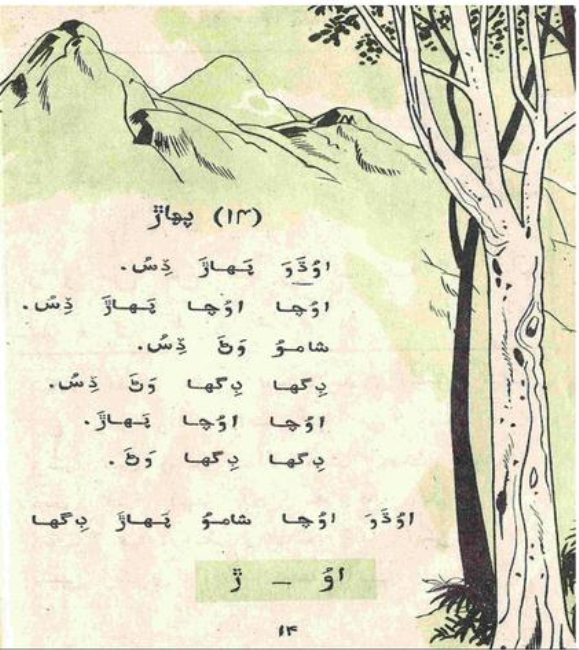 (۱۴) پهاڙ
اوُڏَوَ پَهاڙَ ڏِسُ.
اوُچا اوُچا پَهاڙَ ڏِسُ.
شاموُ وَڻَ ڏِسُ.
ڊِگها ڊِگها وَڻَ ڏِسُ.
اوُچا اوُچا پَهاڙَ.
ڊِگها ڊِگها وَڻَ.
اوُڏَوَ اوُچا شاموُ پَهاڙَ ڊِگها
اوُ – ڙ
۱۴